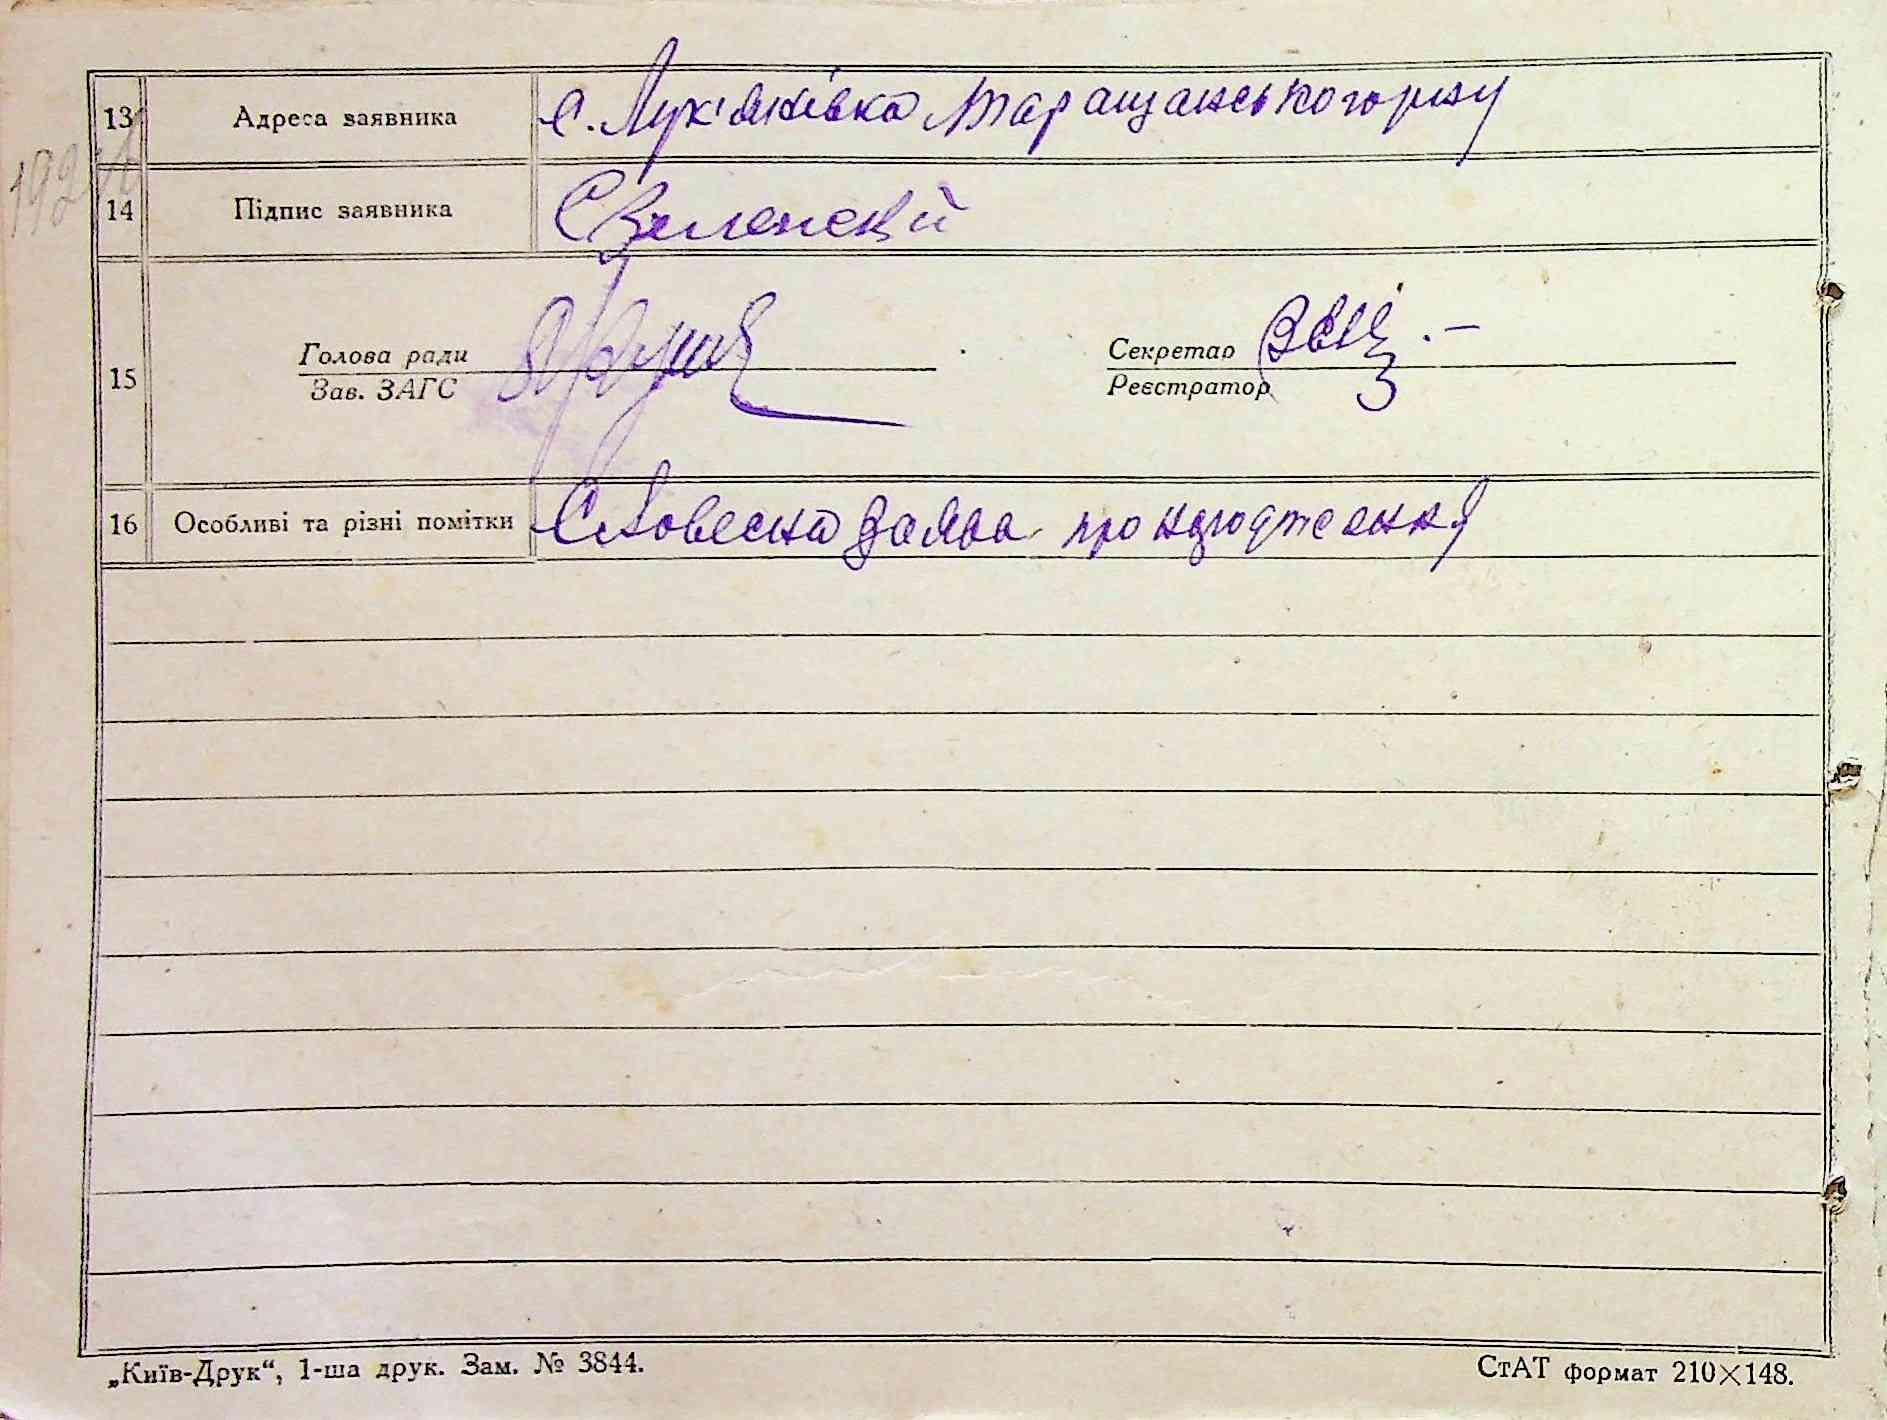 13 Адреса заявника с. Лук'янівка Таращанського р-ну
14 Підпис заявника С Зеленский
Голова ради Секретар
15
Зав. ЗАГС Реєстратор
16 Особливі та різні помітки Словесна заява про народження
„Київ-Друк“, 1-ша друк. Зам. № 3844. СтАТ формат 210×148.